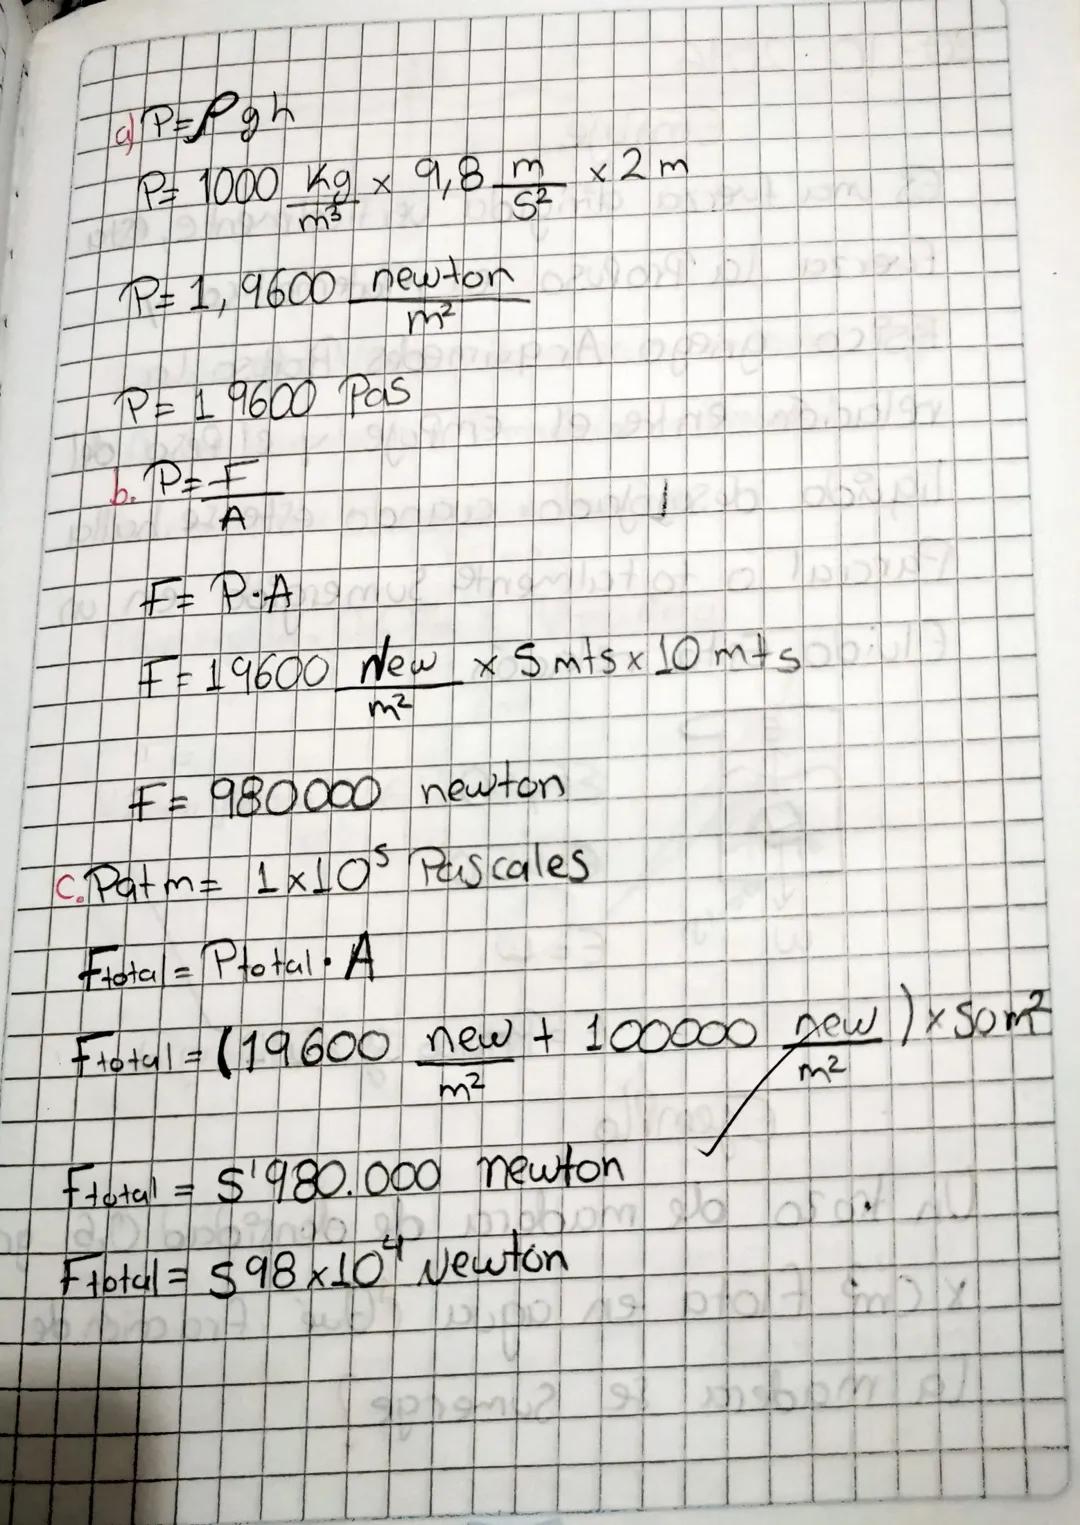 a) P=ρgh
P= 1000 Kg/m³ x 9,8 m/s² x 2 m
P= 1,9600 newton/m²
P= 19600 Pas
b. P= F/A
F= P·A
F= 19600 New/m² x 5 mts x 10 mts
F= 980000 newton
c. Patm= 1x10⁵ Pascales
Ftotal = Ptotal · A
Ftotal = (19600 new/m² + 100000 new/m²) x 50m²
Ftotal = 5'980.000 newton
Ftotal = 598x10⁴ Newton